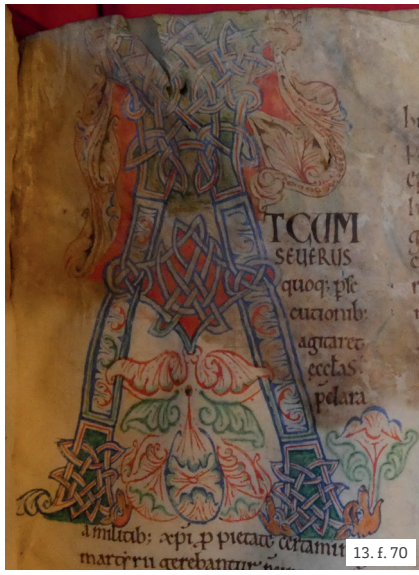 A
TCUM
SEUERUS
quoq; pse
cutionib;
agitaret
eccłas
p clara
a militib; xpi p pietate certami
martyrii gerebantur
13. f. 70